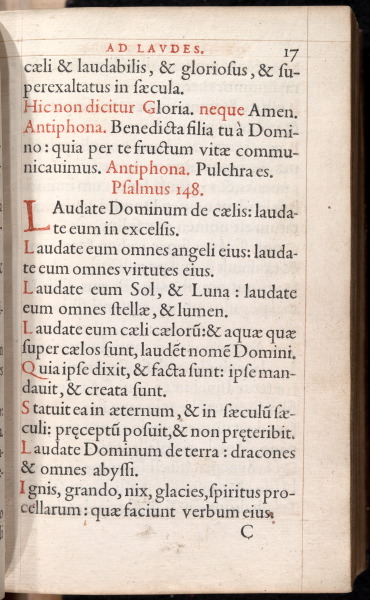 AD LAVDES. 17
cæli & laudabilis, & gloriosus, & su-
perexaltatus in sæcula.
Hic non dicitur Gloria. neque Amen.
Antiphona. Benedicta filia tu à Domi-
no: quia per te fructum vitæ commu-
nicauimus. Antiphona. Pulchra es.
Psalmus 148.
LAudate Dominum de cælis: lauda-
te eum in excelsis.
Laudate eum omnes angeli eius: lauda-
te eum omnes virtutes eius.
Laudate eum Sol, & Luna: laudate
eum omnes stellæ, & lumen.
Laudate eum cæli cælorũ: & aquæ quæ
super cælos sunt, laudẽt nomẽ Domini.
Quia ipse dixit, & facta sunt: ipse man-
dauit, & creata sunt.
Statuit ea in æternum, & in sæculũ sæ-
culi: pręceptũ posuit, & non pręteribit.
Laudate Dominum de terra: dracones
& omnes abyssi.
Ignis, grando, nix, glacies, spiritus pro-
cellarum: quæ faciunt verbum eius.
C